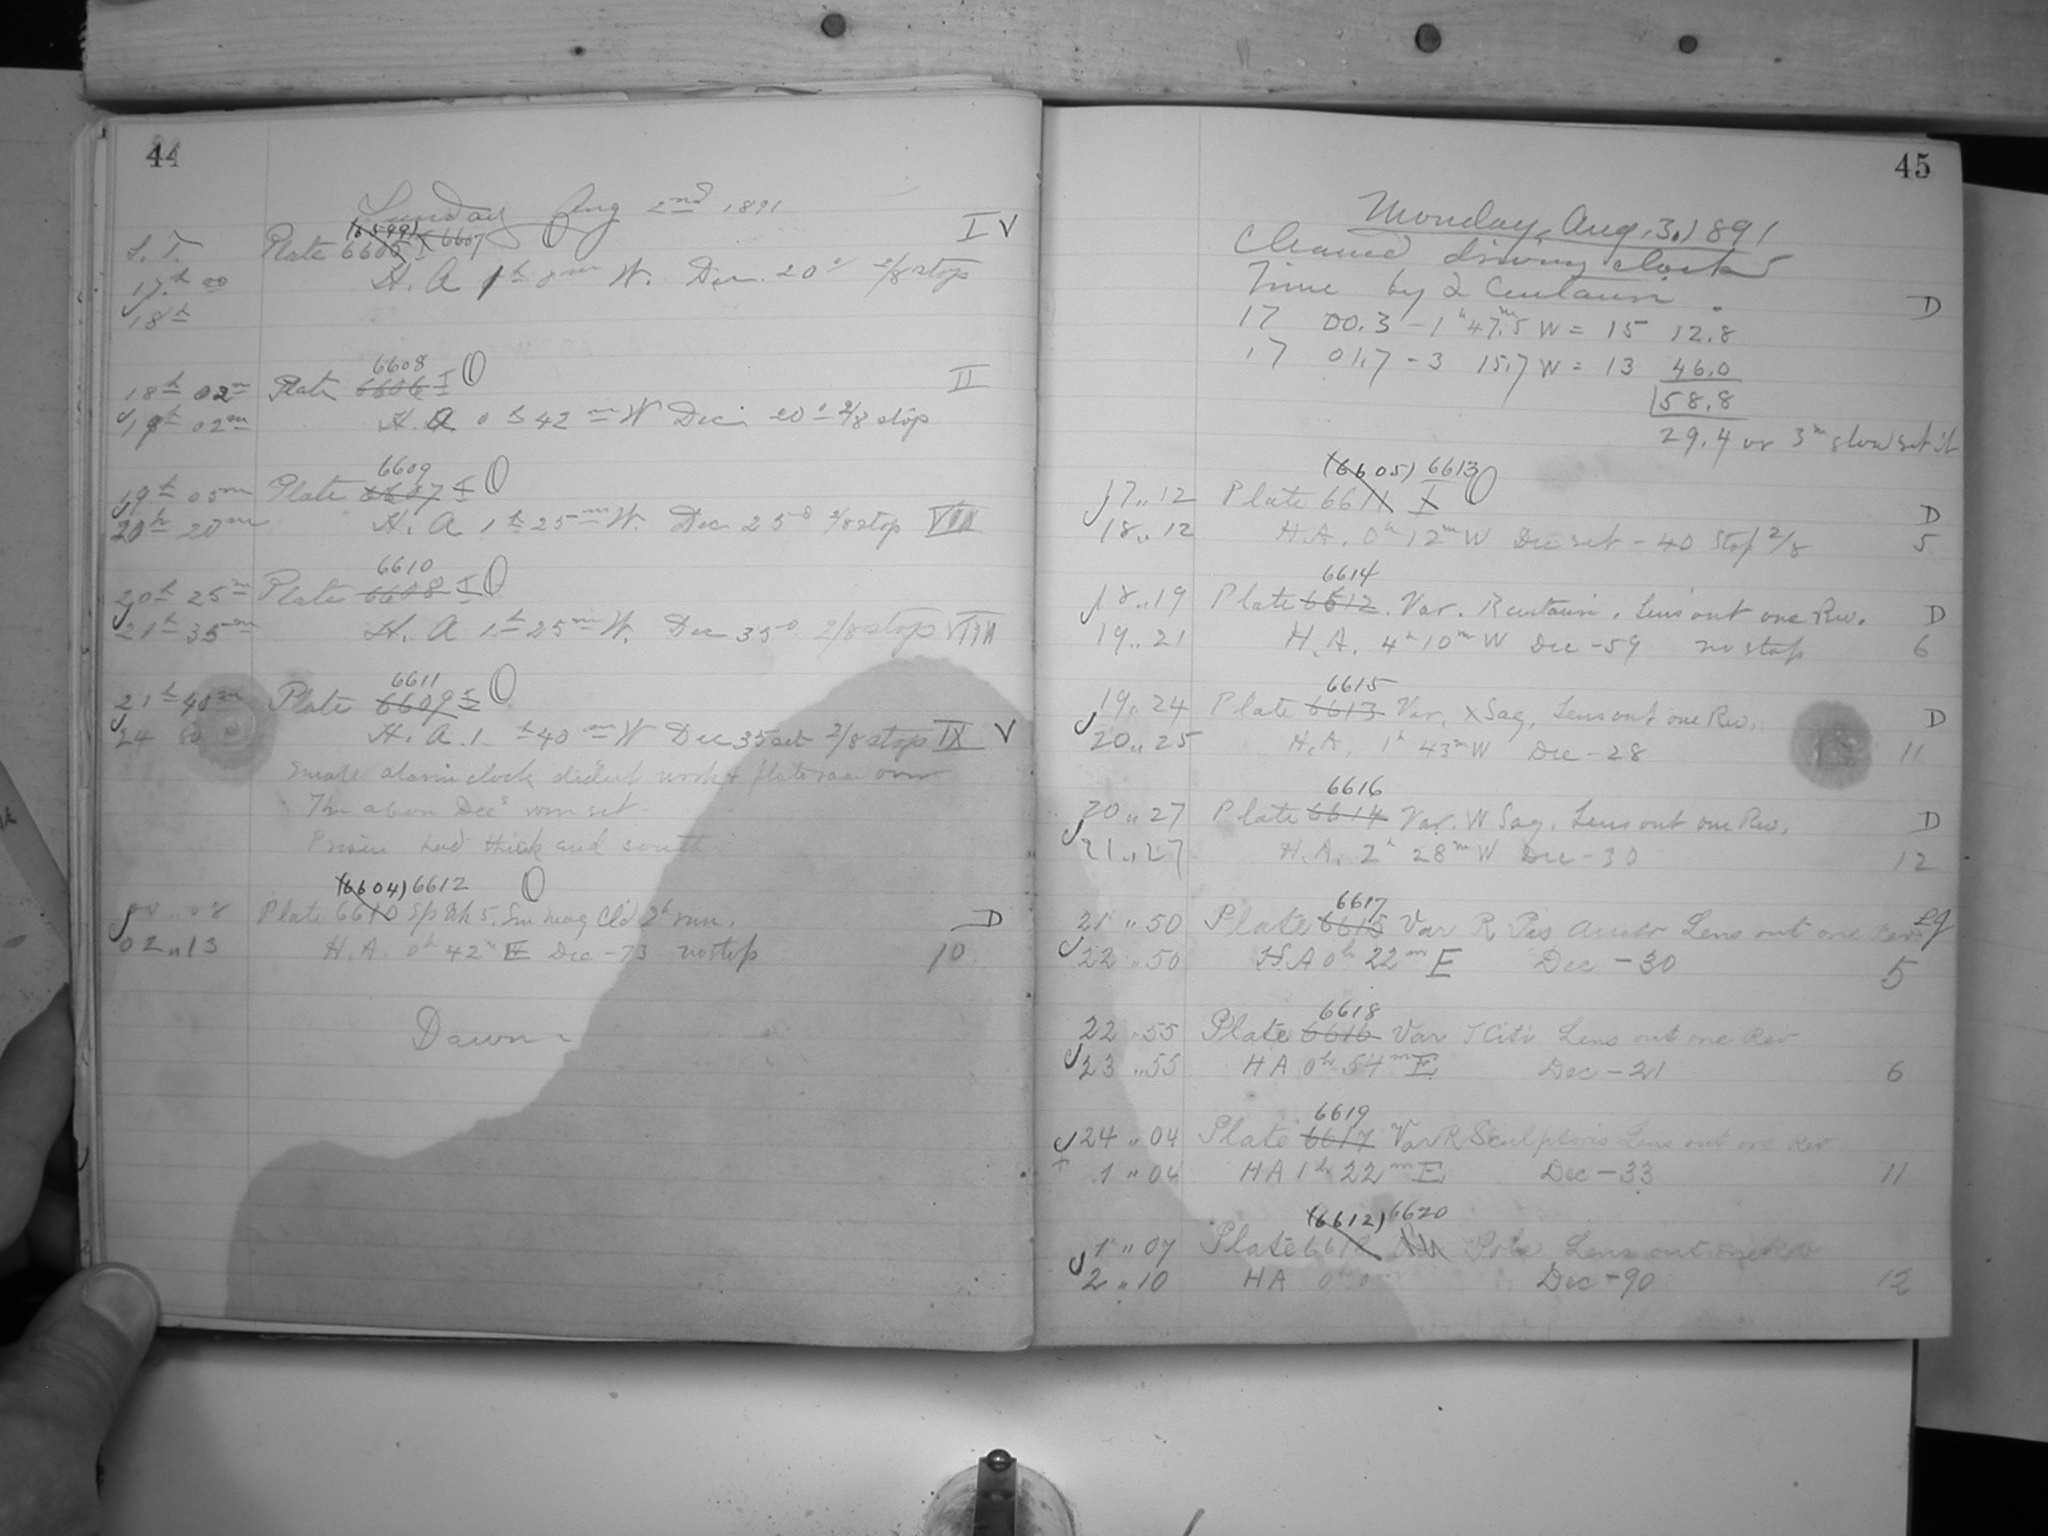 44
Sunday Aug 2nd 1891
S. T. Plate 6605 I (6599) 6607 O I V
17h 00 H. A 1h 0m W. Dec. 20° 2/8 stop
18h
6608
18h 02m Plate 6606 I O II
19h 02m H. A 0h 42m W Dec. 20° 2/8 stop
6609
19h 05m Plate 6607 I O
20h 20m H. A 1h 25m W. Dec 25° 2/8 stop VII
6610
20h 25m Plate 6608 I O
21h 35m H. A 1h 25m W. Dec 35° 2/8 stop VIII
6611
21h 40m Plate 6609 I O
24 H. A. 1h 40m W Dec 35 set 2/8 stop IX V
alarm clock didn't work & plate ran over
The above Decs were set
Prism had thick end south
(6604) 6612 O
08 Plate 6610 Sp Rk 5. Sm Mag Cld 2h run. D
02 " 13 H. A. 0h 42m E Dec -73 no stop 10
Dawn
45
Monday, Aug. 3, 1891
Cleaned driving clock
Time by 2 Centauri . D
17 00.3 - 1h 47.m5 W = 15 12.8
17 01.7 - 3 15.7 W = 13 46.0
58.8
29.4 or 3m slow set it
(6605) 6613 O
17 " 12 Plate 6611 I D
18 " 12 H. A. 0h 12m W Dec set - 40 Stop 2/8 5
6614
18 " 19 Plate 6612. Var. R Centauri. Lens out one Rev. D
19 " 21 H. A. 4h 10m W Dec - 59 no stop 6
6615
19 " 24 Plate 6613 Var. X Sag. Lens out one Rev. D
20 " 25 H. A. 1h 43m W Dec - 28 11
6616
20 " 27 Plate 6614 Var. W Sag. Lens out one Rev. D
21 " 27 H. A. 2h 28m W Dec - 30 12
6617
21 " 50 Plate 6615 Var R Pis Austr Lens out one Rev
22 " 50 HA 0h 22m E Dec - 30 5
6618
22 " 55 Plate 6616 Var T Citi Lens out one Rev
23 " 55 HA 0h 54m E Dec - 21 6
6619
24 " 04 Plate 6617 Var R Sculptoris Lens out one Rev
1 " 04 HA 1h 22m E Dec - 33 11
(6612) 6620
1 " 07 Plate 6618 Pole Lens out one Rev
2 " 10 HA 0h 0m Dec - 90 12